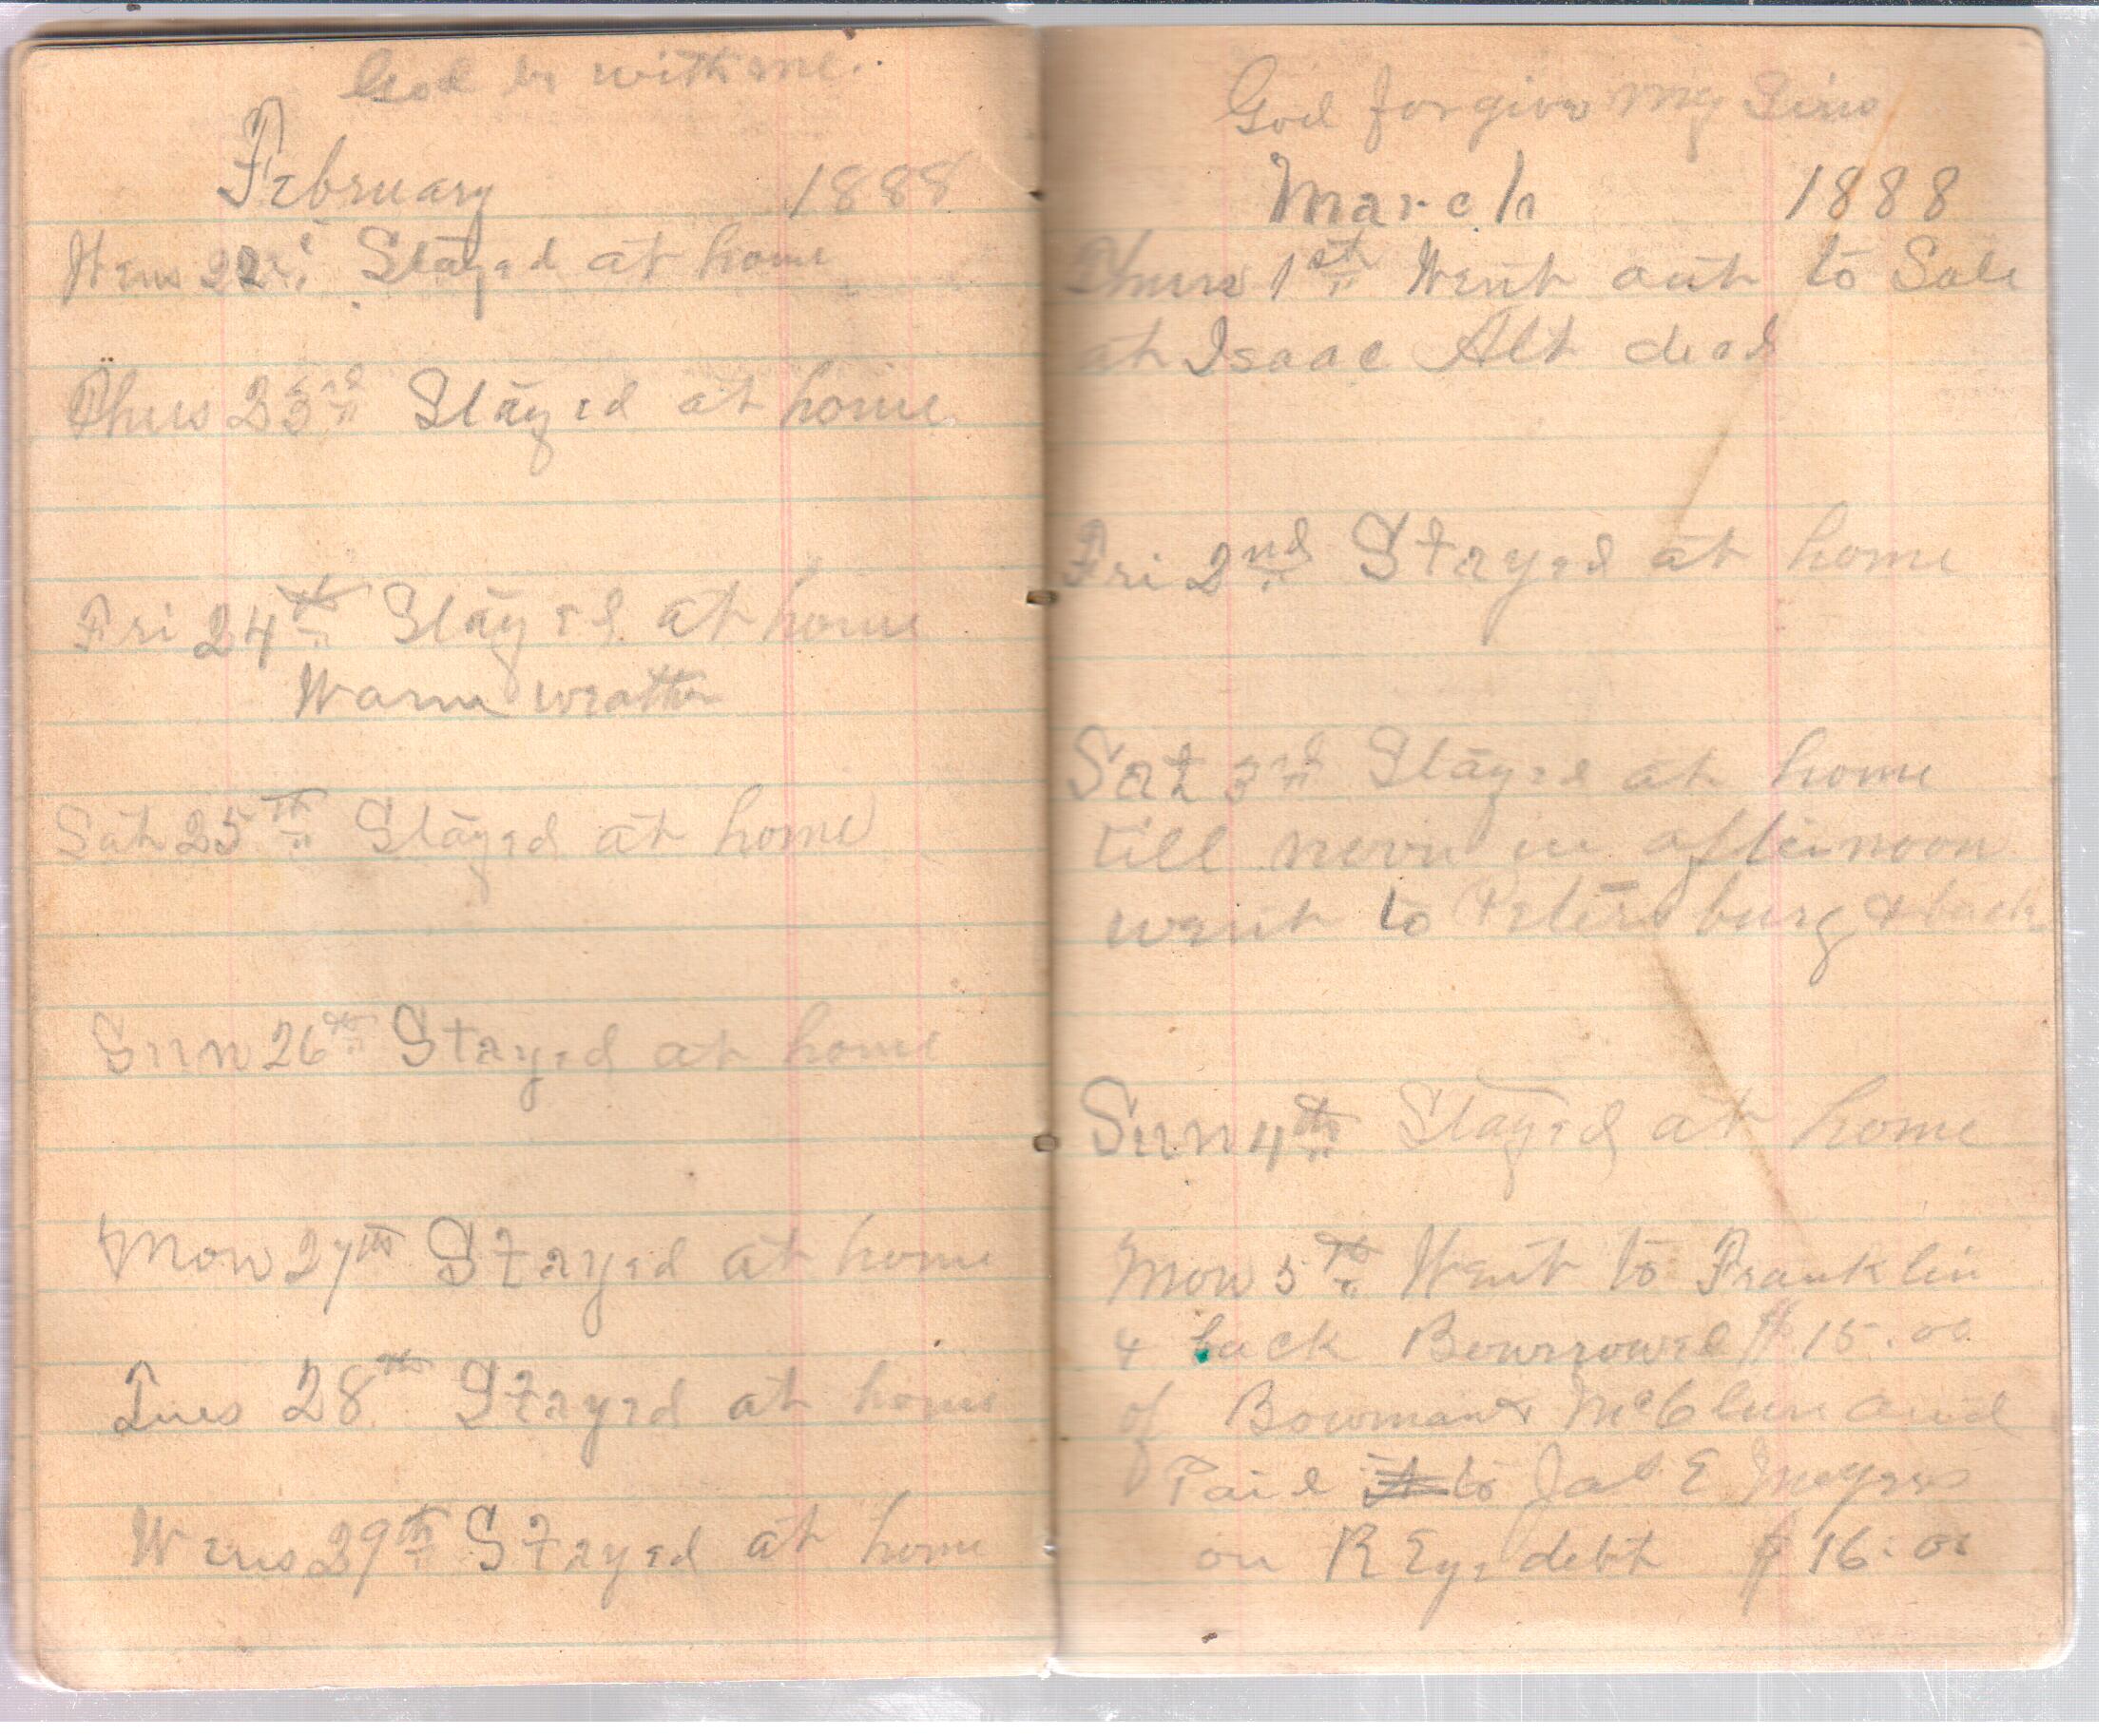 God be with me.
February 1888
Wens 22 Stayed at home
Thus 23rd Stayed at home
Fri 24th Stayed at home
Warm weather
Sat 25th Stayed at home
Sun 26th Stayed at home
Mon 27th Stayed at home
Tues 28th Stayed at home
Wens 29th Stayed at home
God forgive my Sins
March 1888
Thurs 1st Went out to Sale
at Isaac Alt dead
Fri 2nd Stayed at home
Sat 3rd Stayed at home
till noon in afternoon
went to Petersburg & back
Sun 4th Stayed at home
Mon 5th Went to Franklin
& back Bowrrowed $15.00
of Bowman & McClure and
Paid to Jas E Meyers
on R Eye debt $16.00